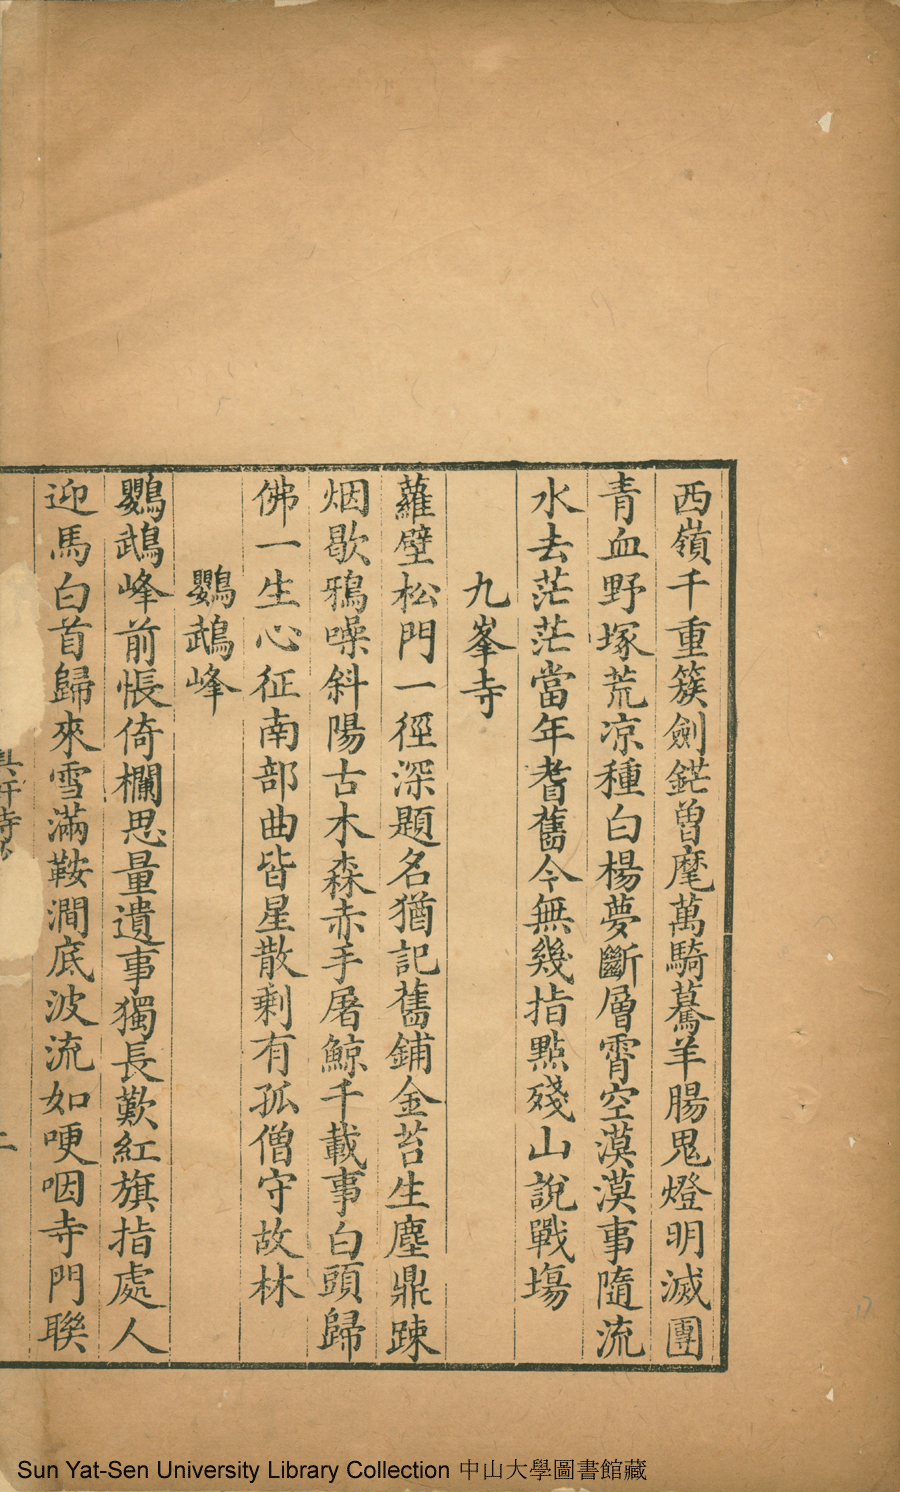 西嶺千重簇劍鋩曽麾萬騎驀羊腸鬼燈明滅團
青血野塚荒凉種白楊夢斷層霄空漠漠事隨流
水去茫茫當年耆舊今無幾指點殘山說戰塲
九峯寺
蘿壁松門一徑深題名猶記舊鋪金苔生塵鼎踈
烟歇鴉噪斜陽古木森赤手屠鯨千載事白頭歸
佛一生心征南部曲皆星散剩有孤僧守故林
鸚鵡峰
鸚鵡峰前悵倚欄思量遺事獨長歎紅旗指處人
迎馬白首歸來雪滿鞍澗底波流如哽咽寺門聯
二
Sun Yat-Sen University Library Collection 中山大學圖書館藏